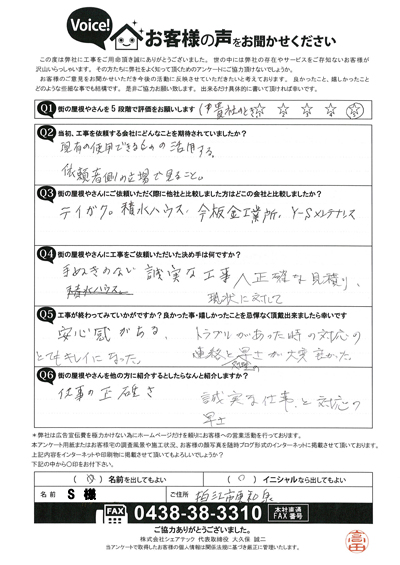 Voice!
お客様の声をお聞かせください
この度は弊社に工事をご用命頂き誠にありがとうございました。世の中には弊社の存在やサービスをご存知ないお客様が
沢山いらっしゃいます。その方たちに弊社をよく知って頂くためのアンケートにご協力頂けないでしょうか。
お客様のご意見をお聞かせいただき今後の活動に反映させていただきたいと考えております。良かったこと、嬉しかったこと
どのような些細な事でも結構です。是非ご協力お願い致します。出来るだけ具体的に書いて頂ければ幸いです。
Q1 街の屋根やさんを5段階で評価をお願いします
☆ ☆ ☆ ☆ ☆
Q2 当初、工事を依頼する会社にどんなことを期待されていましたか?
現有の使用できるものの活用する。
依頼者側の立場で見ること。
Q3 街の屋根やさんにご依頼いただく際に他社と比較しました方はどこの会社と比較しましたか?
テイガク。積水ハウス。今板金工業所。Y-Sメンテナンス
Q4 街の屋根やさんに工事をご依頼いただいた決め手は何ですか?
手ぬきのない 誠実な工事 正確な見積り、
積水ハウス。 現状に対して
Q5 工事が終わってみていかがですか?良かった事・嬉しかったことを忌憚なく頂戴出来ましたら幸いです
安心感がある、 トラブルがあった時の対応の
とてもキレイになった。 連絡と 早さが大変良かった。
Q6 街の屋根やさんを他の方に紹介するとしたらなんと紹介しますか?
仕事の正確さ
誠実な仕事、と対応の
早さ
*弊社は広告宣伝費を極力かけない為にホームページだけを頼りにお客様への営業活動を行っております。
本アンケート用紙またはお客様宅の調査風景や施工状況、お客様の顔写真を随時ブログ形式のインターネットに掲載させて頂いております。
上記内容をインターネットや印刷物に掲載させて頂いてもよろしいでしょうか?
下記の中から〇印をお付下さい。
( ) 名前を出してもよい ( ○ ) イニシャルなら出してもよい
名前 S 様 ご住所 狛江市東和泉
FAX 0438-38-3310 本社直通 FAX番号
ご協力ありがとうございました。
株式会社シェアテック 代表取締役 大久保 誠二
当アンケートで取得したお客様の個人情報は関係法規に基づき厳正に管理いたします。